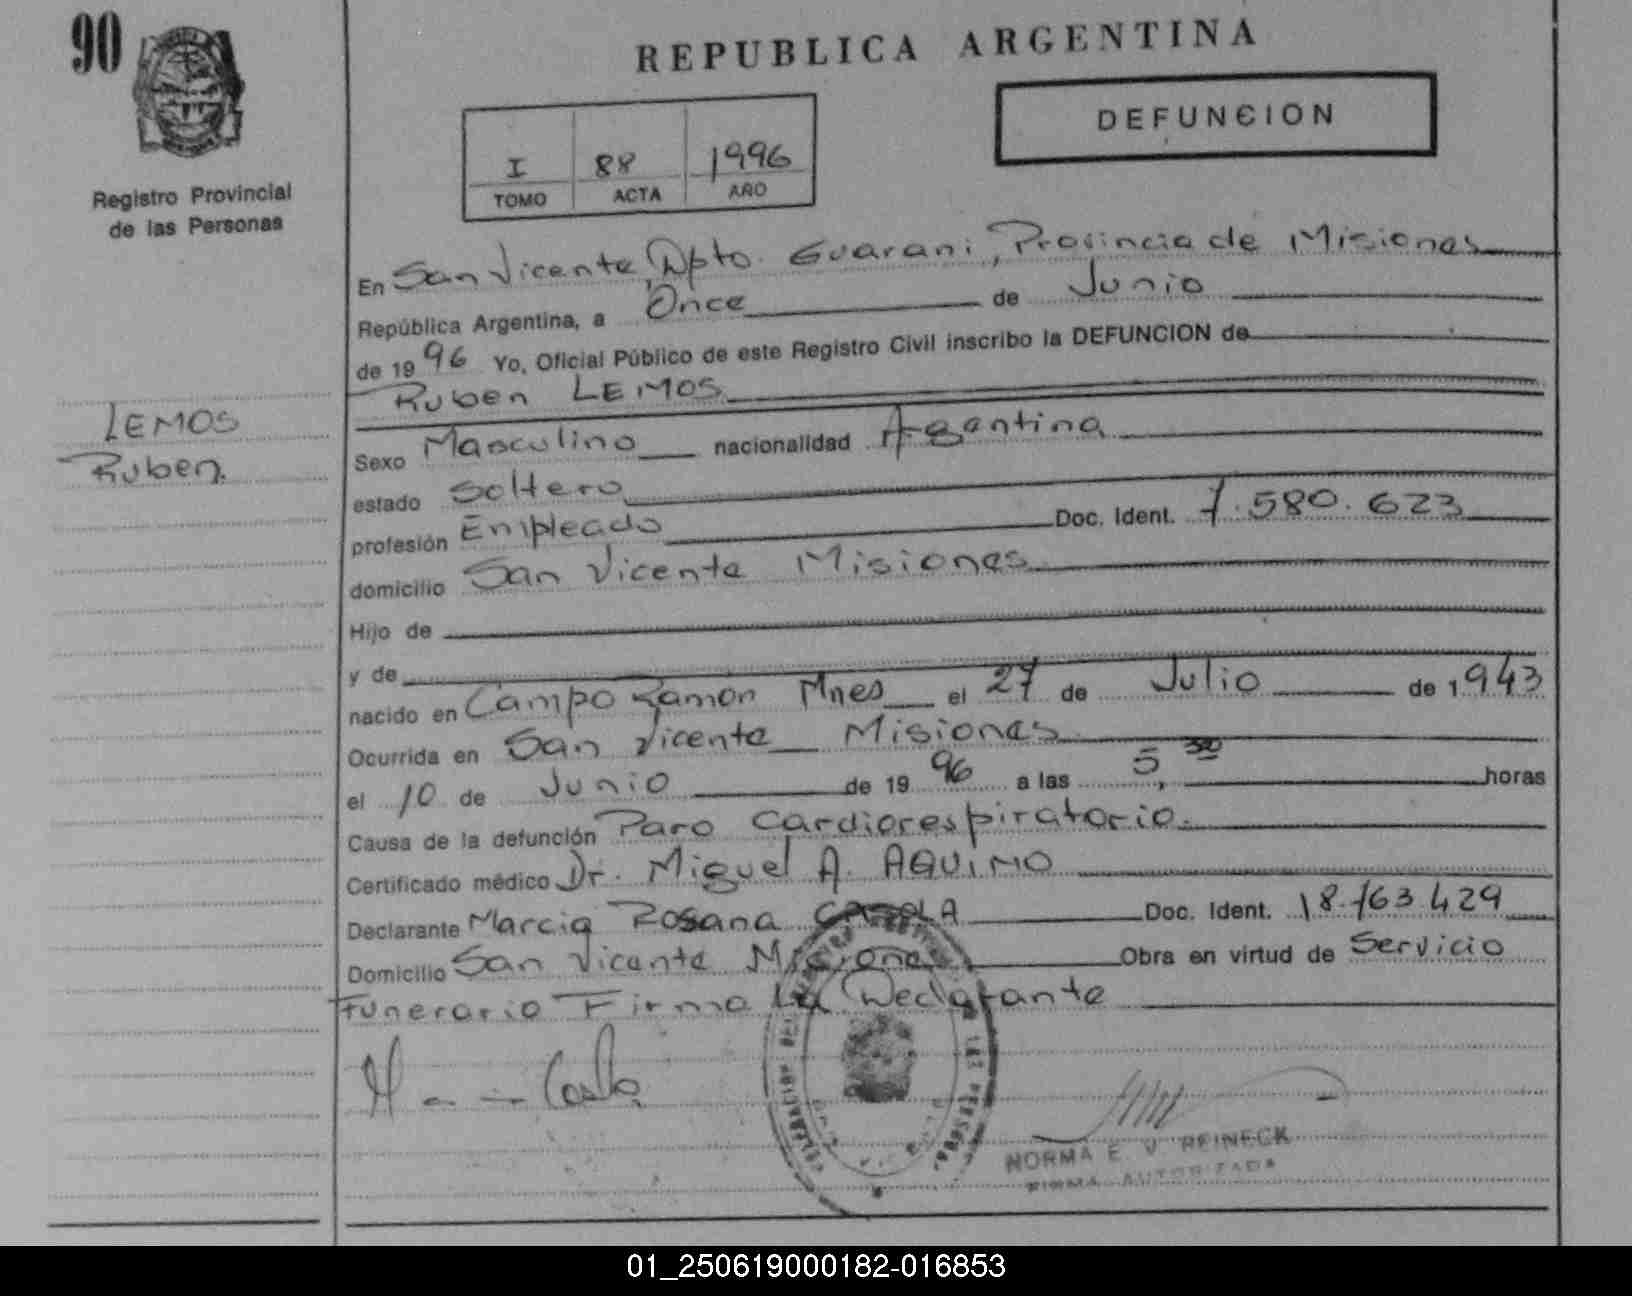 90
REPUBLICA ARGENTINA
DEFUNCION
I 88 1996
TOMO ACTA AÑO
Registro Provincial
de las Personas
En San Vicente, Dpto. Guarani, Provincia de Misiones
República Argentina, a Once de Junio
de 1996 Yo, Oficial Público de este Registro Civil inscribo la DEFUNCION de
Ruben LEMOS
LEMOS
Ruben.
Sexo Masculino nacionalidad Argentina
estado Soltero
profesión Empleado Doc. Ident. 7.580.623
domicilio San Vicente Misiones
Hijo de
y de
nacido en Campo Ramon Mnes el 27 de Julio de 1943
Ocurrida en San Vicente Misiones
el 10 de Junio de 1996 a las 5,30 horas
Causa de la defunción Paro Cardiorespiratorio.
Certificado médico Dr. Miguel A. AQUINO
Declarante Marcia Rosana Doc. Ident. 18.763.429
Domicilio San Vicente Misiones Obra en virtud de Servicio
Funerario Firma La Declarante
NORMA E. V. REINECK
FIRMA AUTORIZADA
01_250619000182-016853